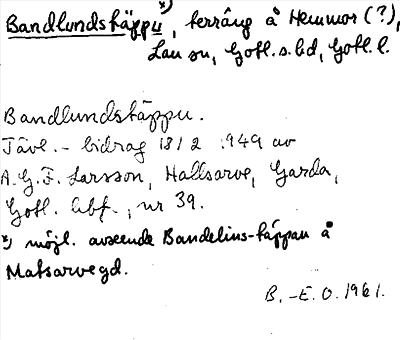 Bandlundstäppu *), terräng å Hemmor (?),
Lau sn, Gotl. s. hd, Gotl. l.
Bandlundstäppu.
Tävl. - bidrag 18/2 1949 av
A. G. F. Larsson, Hallsarve, Garda,
Gotl. hbf., nr 39.
*) möjl. avseende Bandelins-täppan å
Matsarve gd.
B. -E. O. 1961.